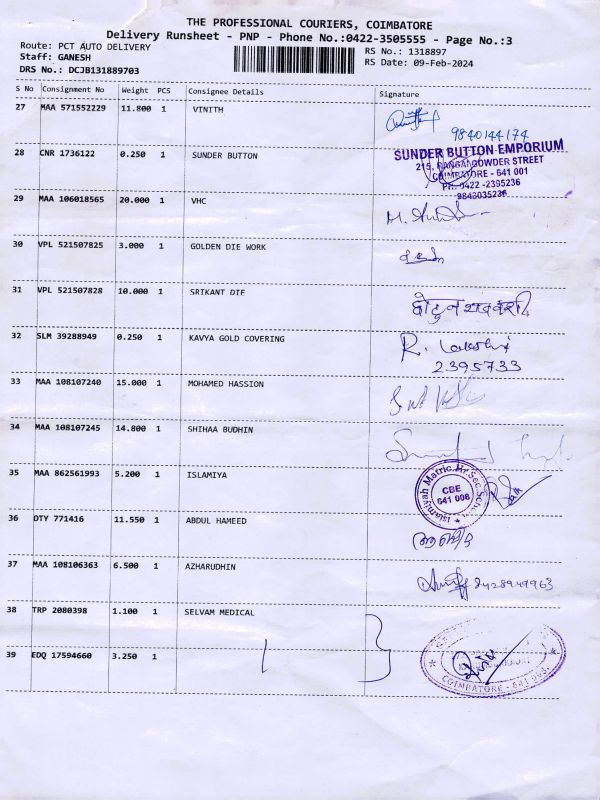 THE PROFESSIONAL COURIERS, COIMBATORE
Delivery Runsheet - PNP - Phone No.:0422-3505555 - Page No.:3
Route: PCT AUTO DELIVERY
Staff: GANESH
DRS No.: DCJB131889703
RS No.: 1318897
RS Date: 09-Feb-2024
S No Consignment No Weight PCS Consignee Details Signature
27 MAA 571552229 11.800 1 VINITH
9840144174
28 CNR 1736122 0.250 1 SUNDER BUTTON
SUNDER BUTTON EMPORIUM
215, RANGAIGOWDER STREET
COIMBATORE - 641 001
PH: 0422 -2395236
9843035236
29 MAA 106018565 20.000 1 VHC
30 VPL 521507825 3.000 1 GOLDEN DIE WORK
31 VPL 521507828 10.000 1 SRIKANT DIE
32 SLM 39288949 0.250 1 KAVYA GOLD COVERING
R. Lakshi
2395733
33 MAA 108107240 15.000 1 MOHAMED HASSION
34 MAA 108107245 14.800 1 SHIHAA BUDHIN
35 MAA 862561993 5.200 1 ISLAMIYA
Islamiyah Matric.Hr.Sec.Sch.
CBE
641 008
36 DTY 771416 11.550 1 ABDUL HAMEED
37 MAA 108106363 6.500 1 AZHARUDHIN
38 TRP 2080398 1.100 1 SELVAM MEDICAL
39 EDQ 17594660 3.250 1
COIMBATORE - 641 008.